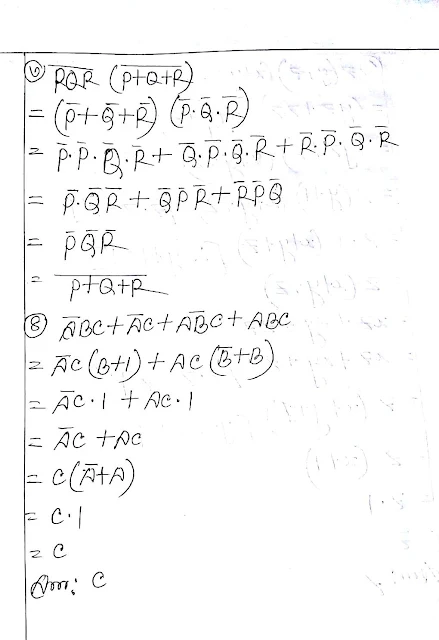 ৩ P̅Q̅R̅ (P̅+̅Q̅+̅R̅)
= (P̅+Q̅+R̅) (P̅.Q̅.R̅)
= P̅.P̅.Q̅.R̅+Q̅.P̅.Q̅.R̅+R̅.P̅.Q̅.R̅
= P̅.Q̅R̅+Q̅P̅R̅+R̅P̅Q̅
= P̅Q̅R̅
= P̅+̅Q̅+̅R̅
৪ A̅BC+A̅C+AB̅C+ABC
= A̅C(B+1)+AC(B̅+B)
= A̅C.1+AC.1
= A̅C+AC
= C(A̅+A)
= C.1
= C
Ans: C